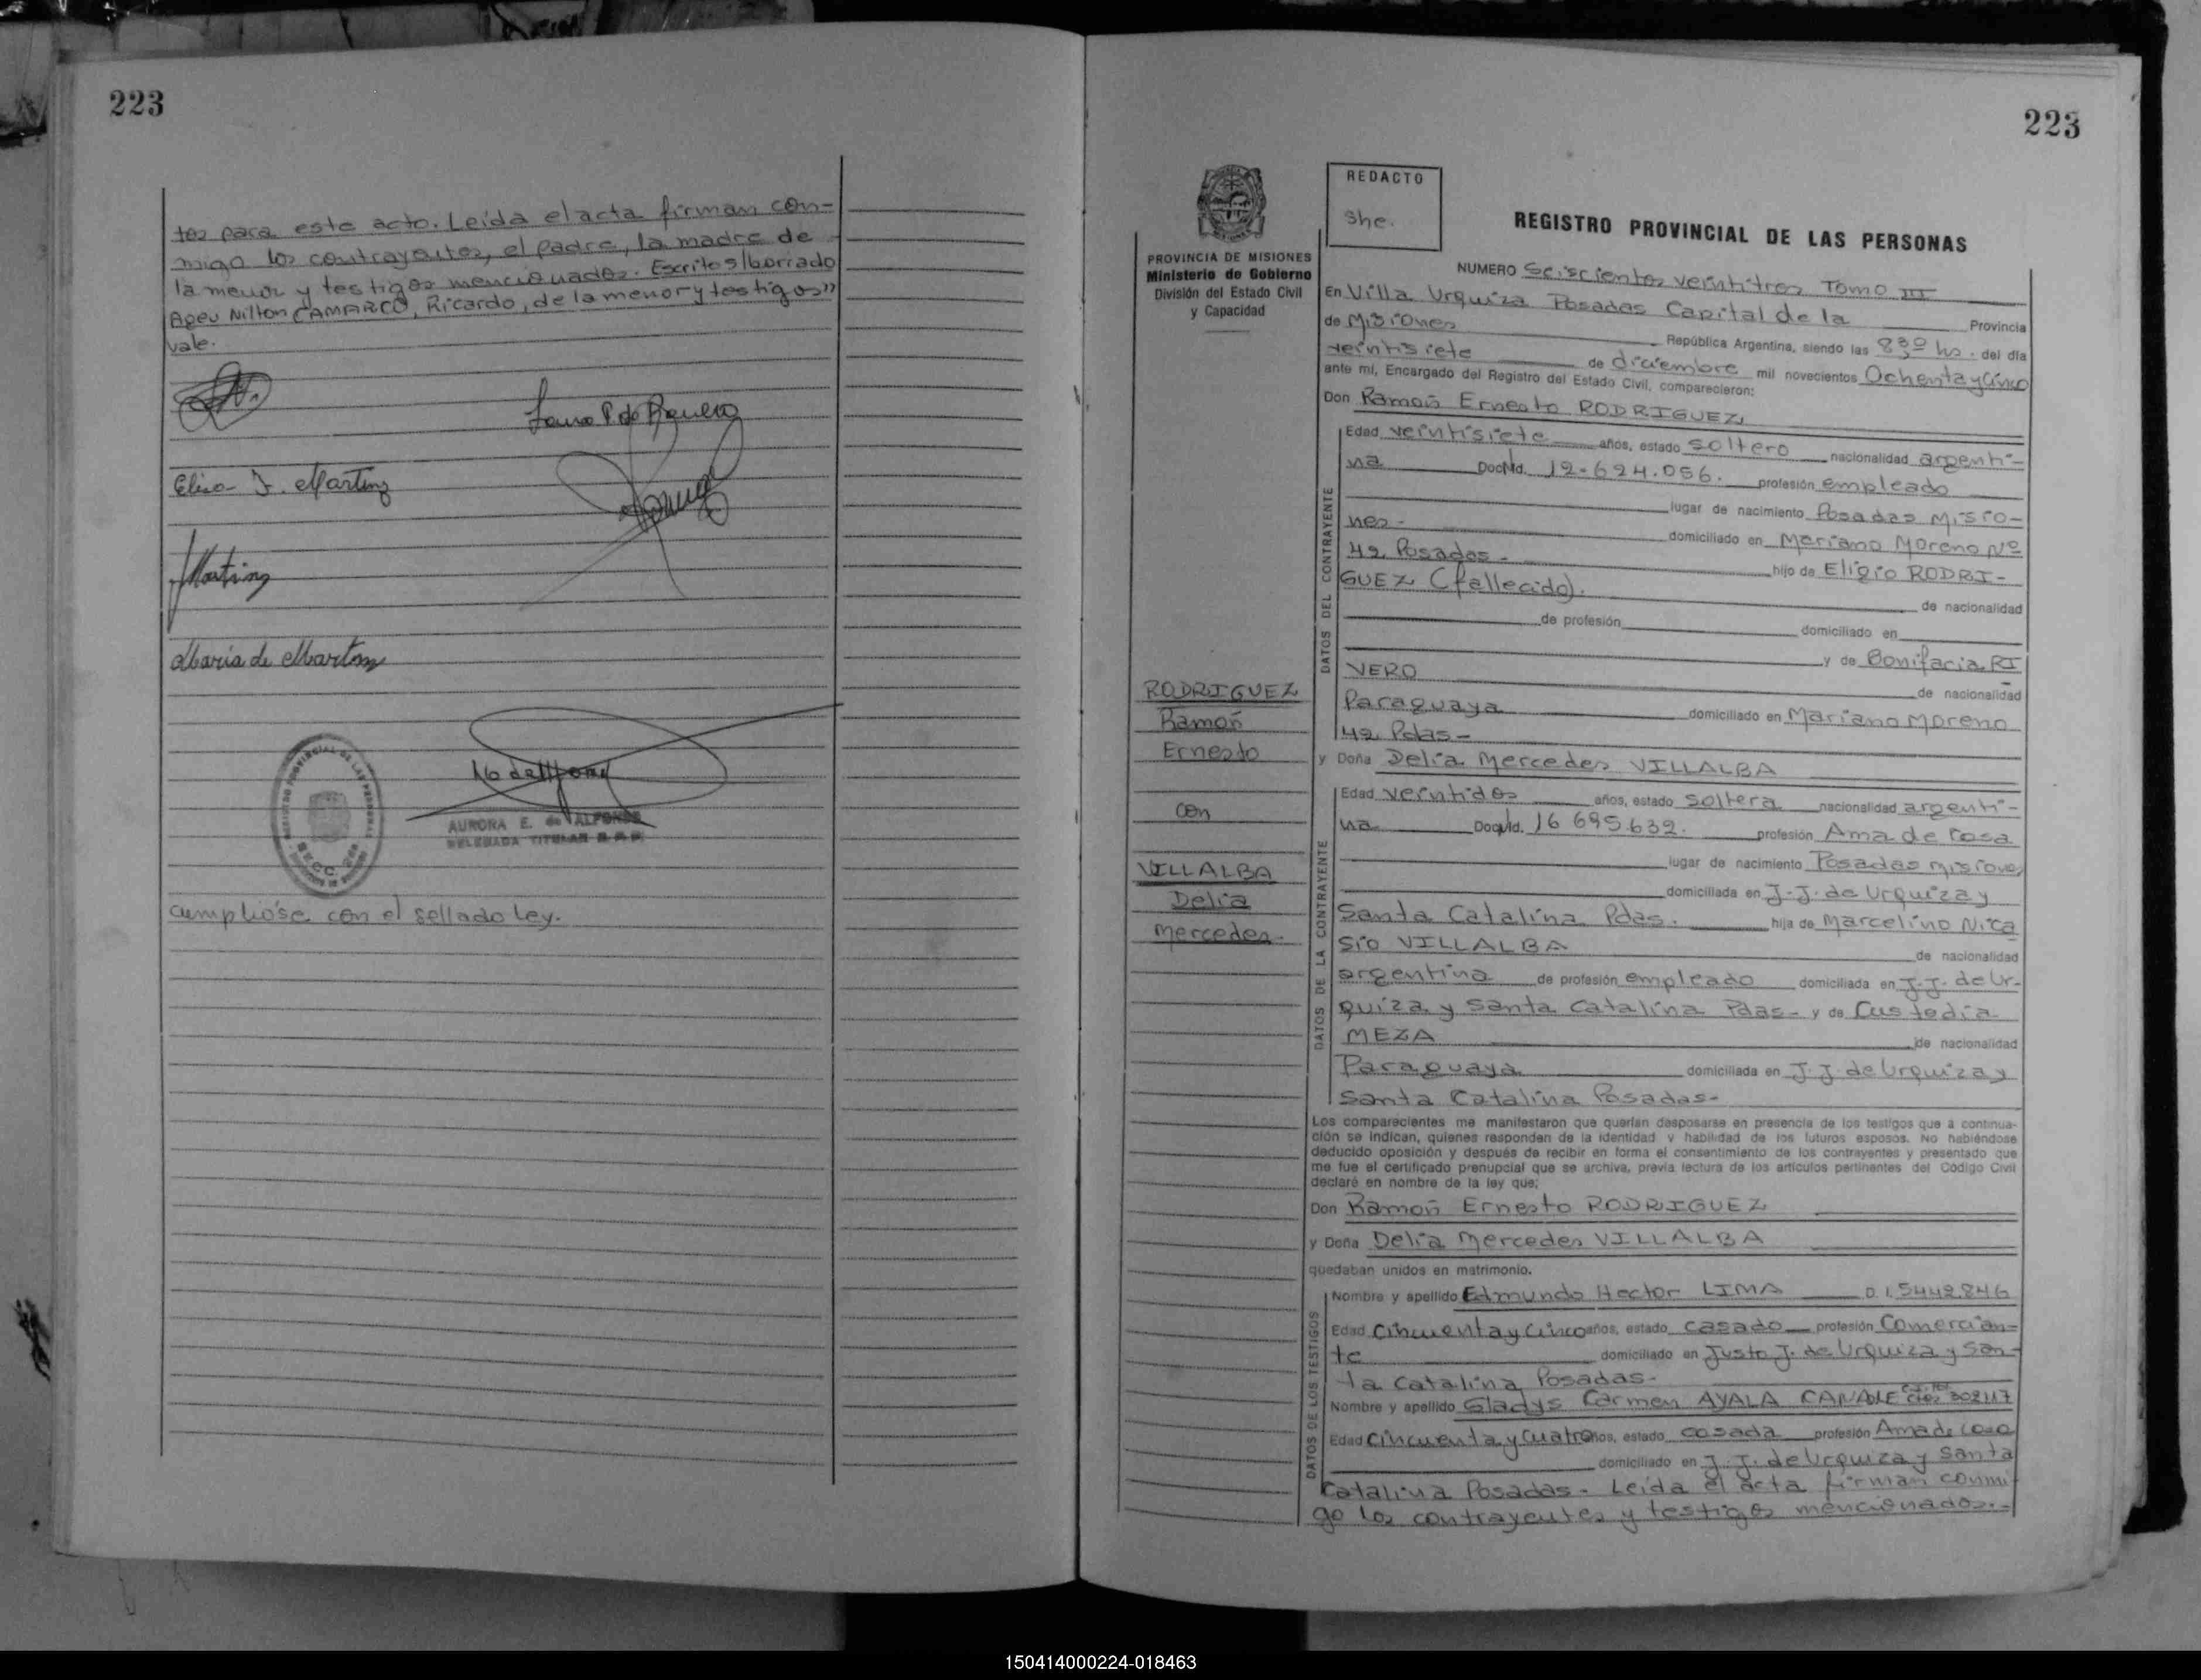 223
tes para este acto. Leída el acta firman con-
migo los contrayentes, el padre, la madre de
la menor y testigos mencionados. Escrito s/borrado
Ageu Nilton CAMARCO, Ricardo, de la menor y testigos"
vale.
Elisa F. Martinz
Martinz
Maria de Martinz
AURORA E. de ALFONSO
DELEGADA TITULAR R.P.P.
cumplióse con el sellado Ley.
223
REDACTO
she.
PROVINCIA DE MISIONES
Ministerio de Gobierno
División del Estado Civil
y Capacidad
REGISTRO PROVINCIAL DE LAS PERSONAS
NUMERO Seiscientos veintitres Tomo III
En Villa Urquiza Posadas Capital de la Provincia
de Misiones República Argentina, siendo las 8,30 hs. del día
veintisiete de diciembre mil novecientos Ochenta y Cinco
ante mí, Encargado del Registro del Estado Civil, comparecieron:
Don Ramón Ernesto RODRIGUEZ
Edad veintisiete años, estado soltero nacionalidad argenti-
na Doc Nd. 12.624.056. profesión empleado
lugar de nacimiento Posadas Misio-
nes- domiciliado en Mariano Moreno Nº
42 Posados- hijo de Eligio RODRI-
GUEZ (fallecido). de nacionalidad
de profesión domiciliado en
y de Bonifacia RI
VERO de nacionalidad
Paraguaya domiciliado en Mariano Moreno
42 Pdas-
y Doña Delia Mercedes VILLALBA
Edad veintidos años, estado soltera nacionalidad argenti-
na Doc Nd. 16 695.632. profesión Ama de casa
lugar de nacimiento Posadas Misiones
domiciliada en J.J. de Urquiza y
Santa Catalina Pdas. hija de Marcelino Nica
sio VILLALBA de nacionalidad
argentina de profesión empleado domiciliada en J.J. de Ur-
quiza y Santa Catalina Pdas- y de Custodia
MEZA de nacionalidad
Paraguaya domiciliada en J.J. de Urquiza y
Santa Catalina Posadas-
DATOS DEL CONTRAYENTE
DATOS DE LA CONTRAYENTE
RODRIGUEZ
Ramón
Ernesto
con
VILLALBA
Delia
Mercedes-
Los comparecientes me manifestaron que querían desposarse en presencia de los testigos que a continua-
ción se indican, quienes responden de la identidad y habilidad de los futuros esposos. No habiéndose
deducido oposición y después de recibir en forma el consentimiento de los contrayentes y presentado que
me fue el certificado prenupcial que se archiva, previa lectura de los artículos pertinentes del Código Civil
declaré en nombre de la ley que;
Don Ramón Ernesto RODRIGUEZ
y Doña Delia Mercedes VILLALBA
quedaban unidos en matrimonio.
DATOS DE LOS TESTIGOS
Nombre y apellido Edmundo Hector LIMA D.I. 5442.846
Edad Cincuenta y Cinco años, estado casado profesión Comercian-
te domiciliado en Justo J. de Urquiza y San-
ta Catalina Posadas-
Nombre y apellido Gladys Carmen AYALA CANALE 302117
Edad Cincuenta y Cuatro años, estado casada profesión Ama de Casa
domiciliado en J. J. de Urquiza y Santa
Catalina Posadas- Leída el acta firman conmi
go los contrayentes y testigos mencionados.-
150414000224-018463